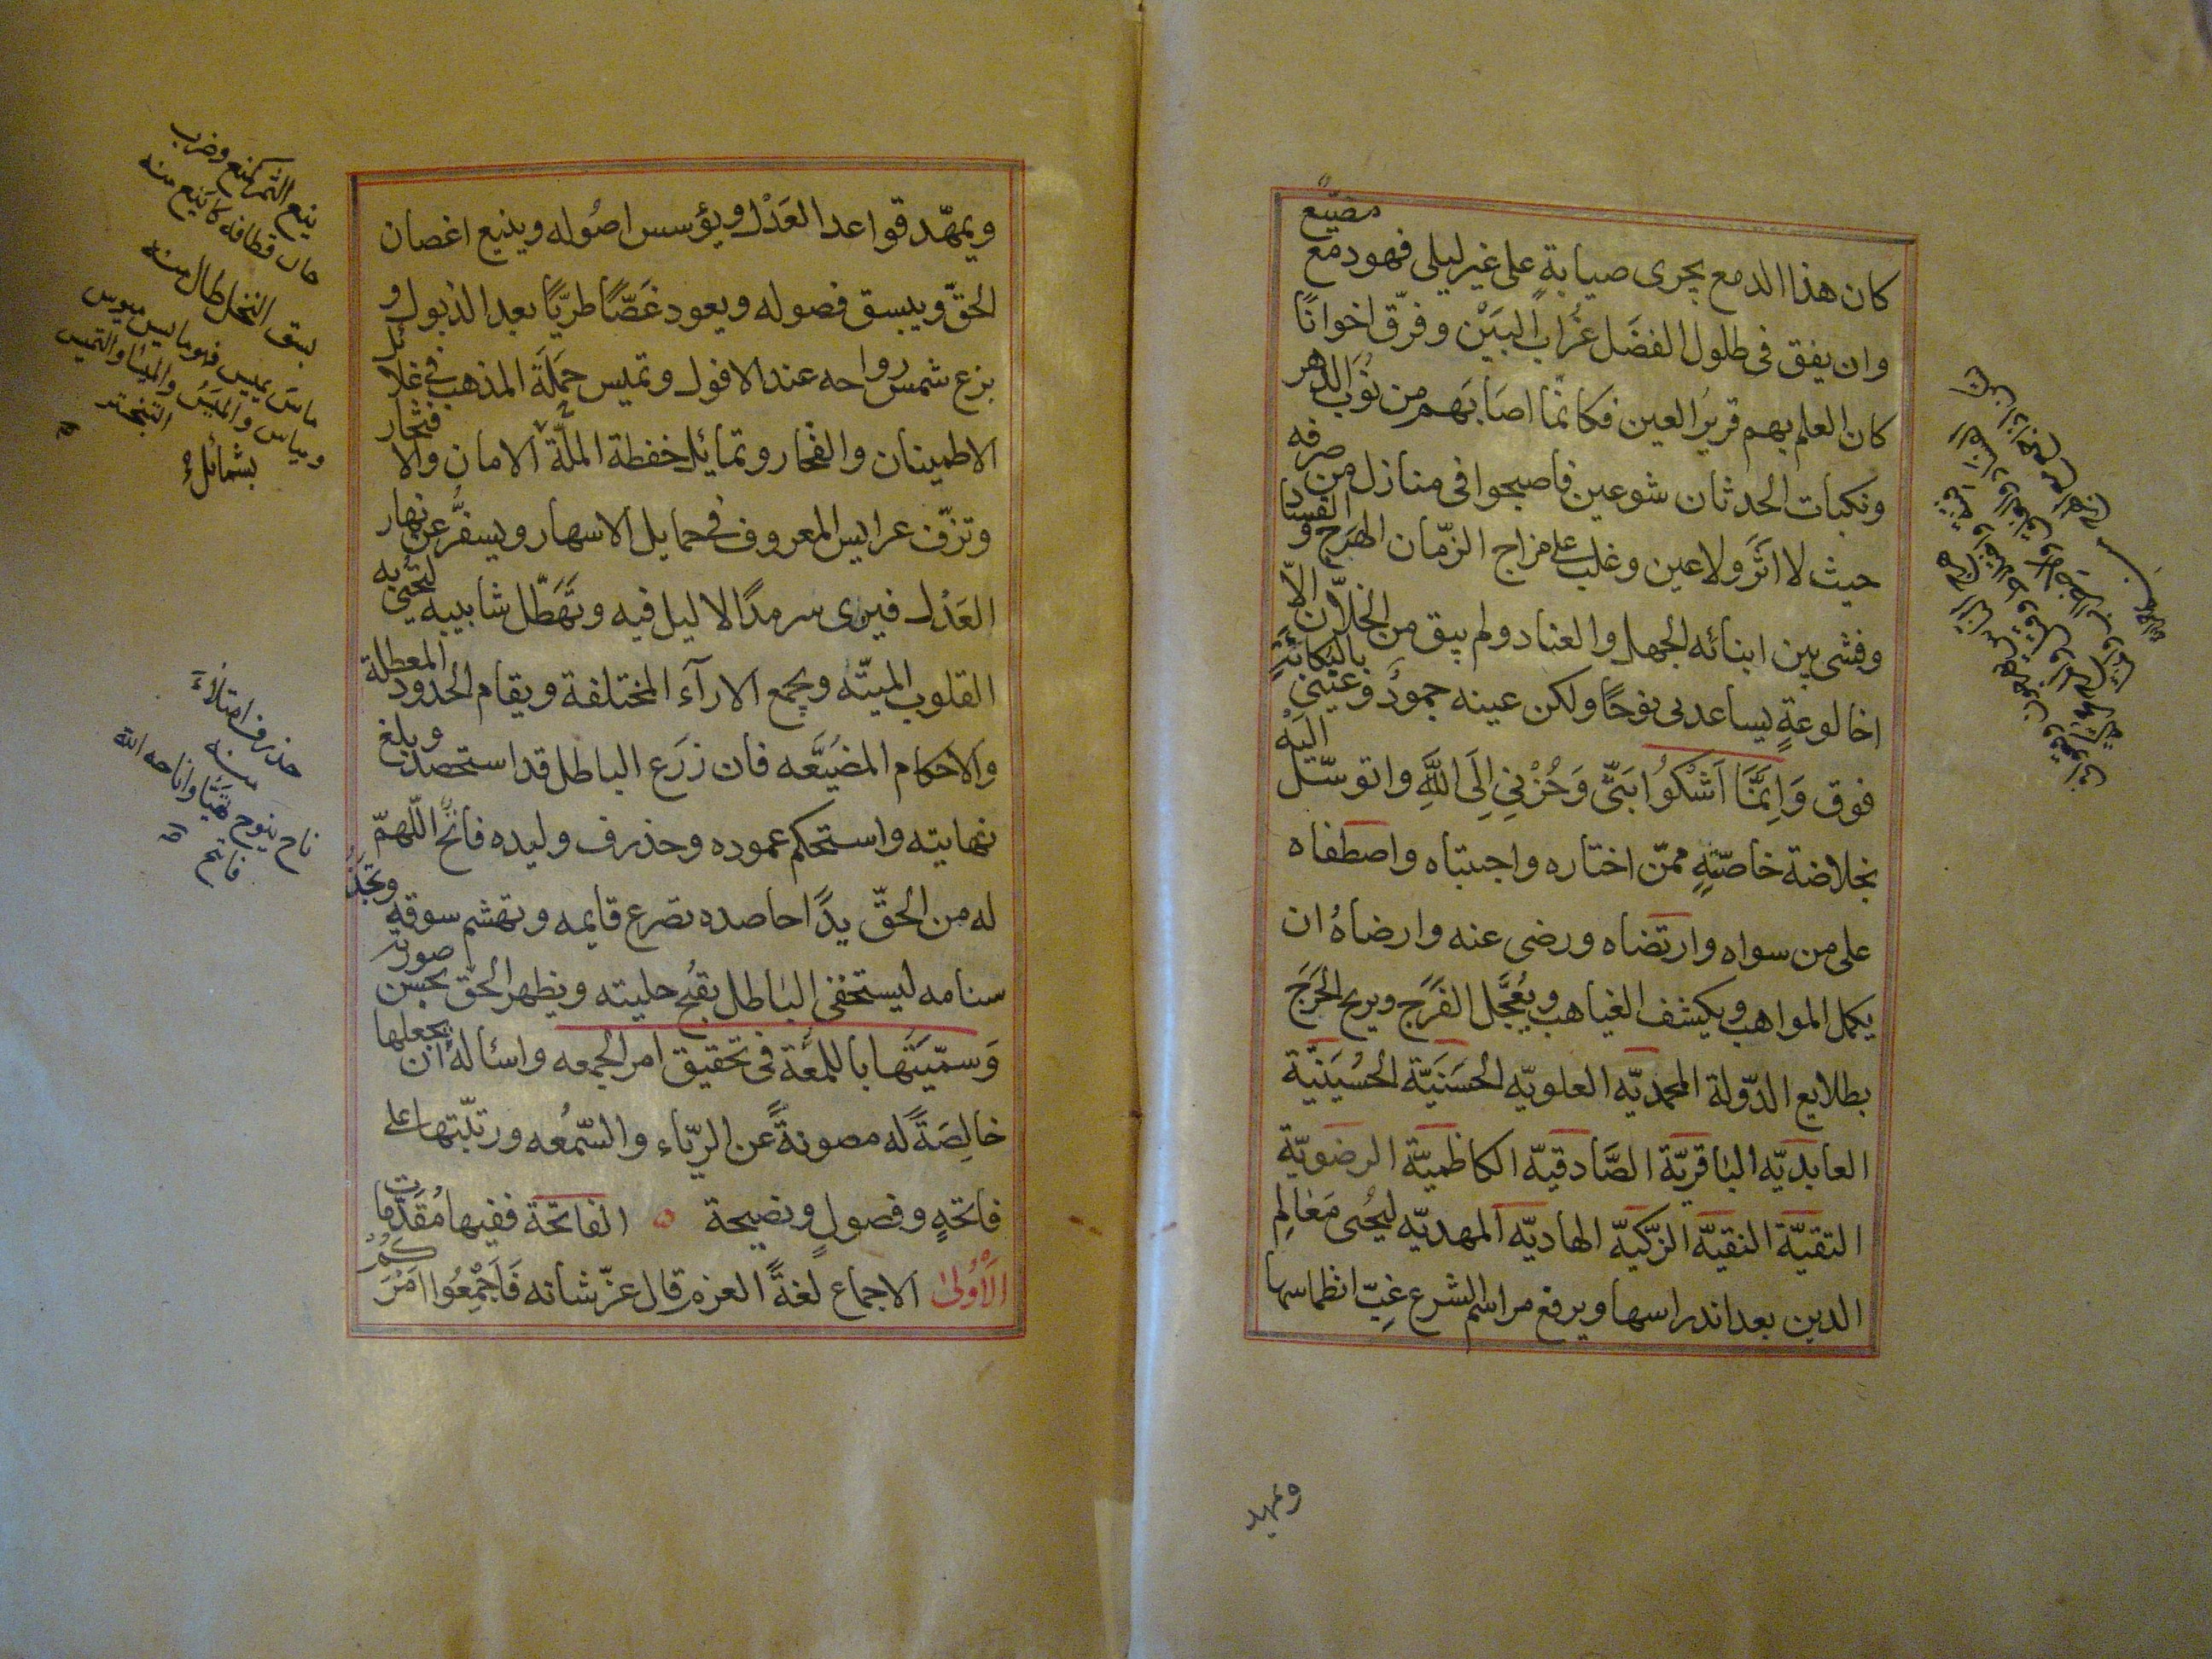 كان هذا الدمع يجرى صبابة على غير ليلى فهو دمع مضيّع
وان يفق فى طلول الفضَل غُراب البَيْن وفرّق اخوانًا
كان العلم بهم قريرُ العين فكانمّا اصَابَهم من نُوَب الدّهر
ونكبات الحدثان شوعين فاصبحوا فى منازل من صرفه
حيث لا اثَرَ ولا عين وغلب على مزاج الزّمان الهَرج و الفساد
وفشى بين ابنائه الجهل والعناد ولم يبق من الخلّان الاّ
اخا لوعةٍ يساعدنى نوحًا ولكن عينه جمودُ وعَيْنى بالبُكائيّةِ
فوق وَاِنمََّا اَشْكُوُا بَثّى وَحُزْنِى اِلَى اللَّهِ واتوسّل اليَهْ
بخلاصة خاصّتِهِ ممّن اختاره واجتباه واصطفاه
على من سواه وارتضاه ورضى عنه وارضاهُ ان
يكمل المواهب ويكشف الغياهب ويُعَجَّل الفَرَج ويريح الحَرَجَ
بطلايع الدّولة المحمديّه العلويّه الحسَنَيَّة الحسُيَنيّة
العابديّه الباقريّة الصَّادقيّه الكاظميّة الرضويّة
التقيَّة النقيَّة الزّكيّة الهاديّه المهديّه ليحُيى مَعٰالِم
الدين بعد اندراسها ويرفع مراسم الشرع غِبّ انطماسها
ويمهد
ويمهّد قواعد العَدْل ويؤسس اصُوله ويينع اغصان
الحقّ ويبسق فصوله ويعود غَصَّا طريًّا بعد الذبول و
بزع شمس رواحه عند الافول وتميس حَمَلَةَ المذهب فى غلائل
الاطمينان والفخار وتمايل حفظة الملّة الامان والافتخار
وتزّف عرايس المعروف فى حمايل الاسهار ويسفُر عن نهار
العَدْل فيرى سرمدًا لا ليل فيه وتَهَطّل شابيبه لتحيى به
القلوب الميتّه ويجمع الارآء المختلفة ويقام الحدُود المعطلة
والاحكام المضيَّعه فان زرَع الباطل قد استحصد وبلغ
نهايته واستحكم عموده وحذرف وليده فاتح اللّهمّ
له من الحقّ يدًا حاصده تصرع قايمه وتهشم سوقه وتجَذّ
سنامه ليستخفى الباطل بقبُح حليته ويظهر الحقّ بحسن صورته
وَسمّيَتَها باللمعُة فى تحقيق امر الجمعه واسأله ان يجعلها
خالِصَةً له مصونةً عن الريّاء والسّمُعه ورتبّتها على
فاتحةٍ وفصولٍ ونصيحة الفاتحّة ففيها مُقَدّمات
الاُوْلىٰ الاجماع لغةً العزم قال عزّ شانه فَاَجمِْعُوا اَمْرَكُمْ
ينع الثّمر كمنع وضرب
حان قطافه كاَيْنع منه
بسق النخل طال منه
ماسَ يميس فهو مايس ميوس
ومياس والميَسُ والميسا والتميس
التبختر
بشمائلُ
حذرف امتلأ
منه
ناح ينوح تهيّا واتاحه الله
فاتح